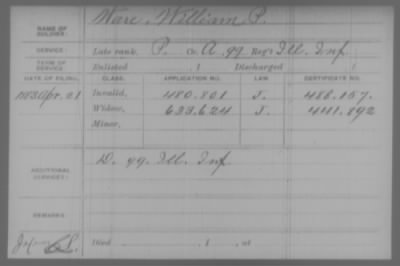 NAME OF SOLDIER: Ware, William P.
SERVICE: Late rank, P. Co. A, 99 Reg't Ill. Inf.
TERM OF SERVICE: Enlisted , 1 Discharged , 1
DATE OF FILING. CLASS. APPLICATION NO. LAW. CERTIFICATE NO.
1883 Apr. 21 Invalid, 480.801 J. 488.157.
Widow, 633.624 J. 441.892
Minor,
ADDITIONAL SERVICES: D. 99 Ill. Inf.
REMARKS:
Died , 1 , at